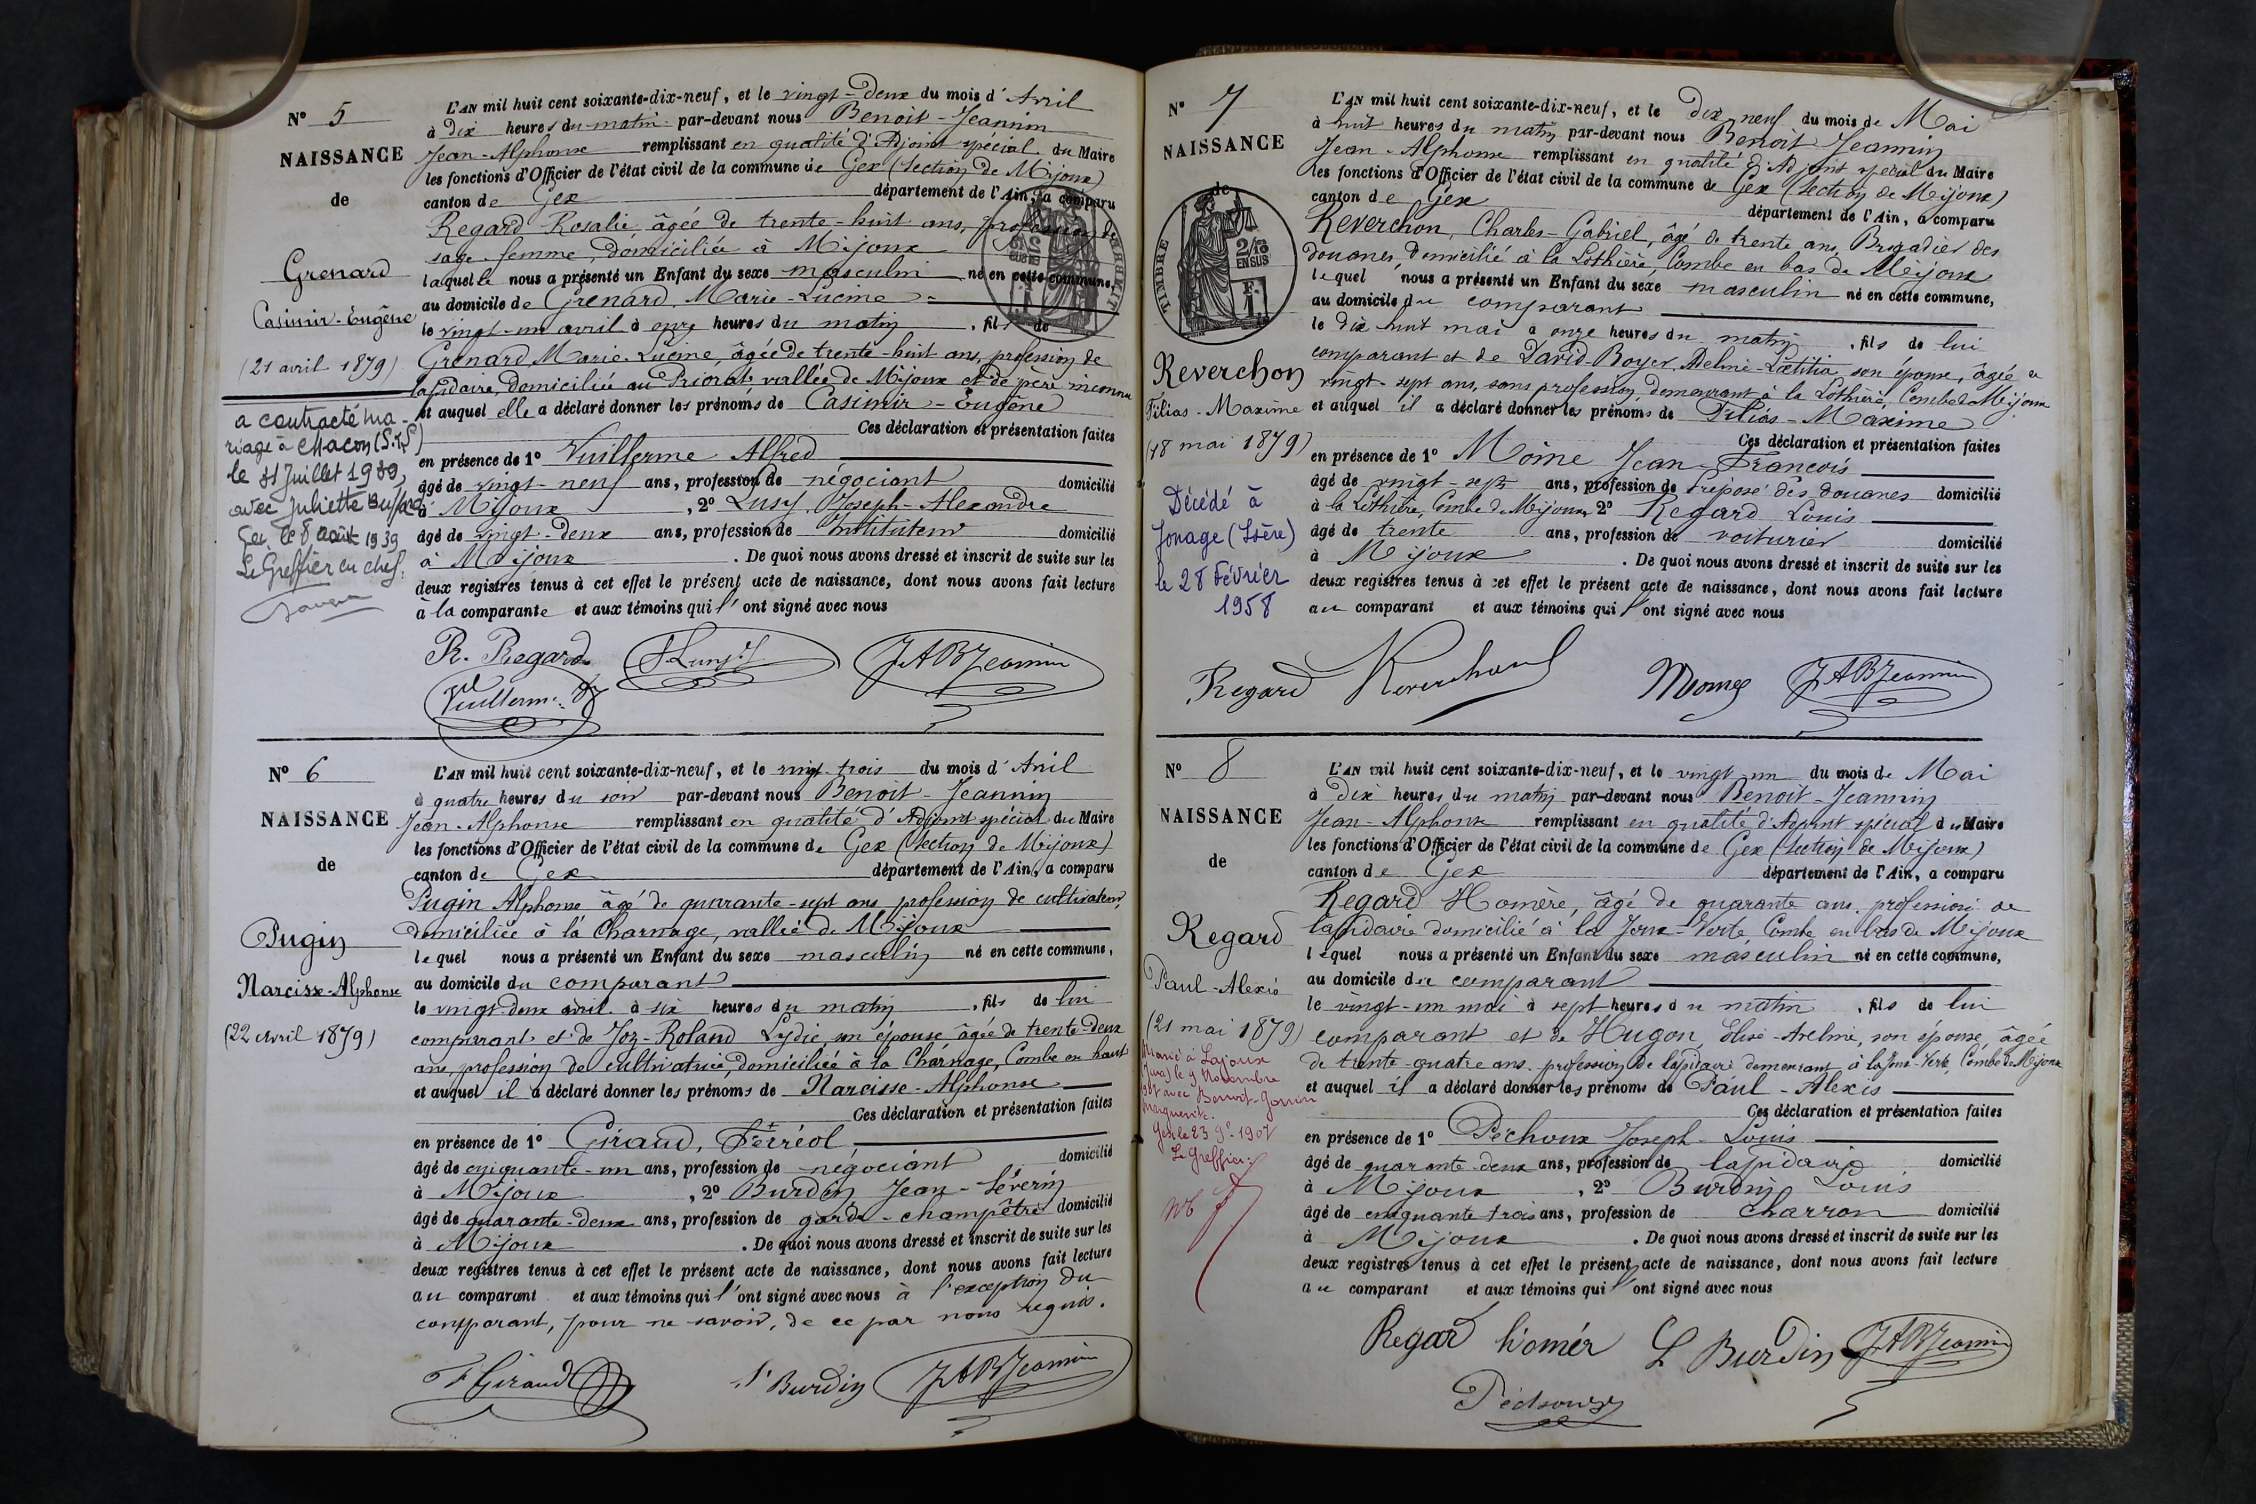 N° 5
NAISSANCE
de
Grenard
Casimir-Eugène
(21 avril 1879)
a contracté ma-
riage à Macon (S.&L)
le 31 Juillet 1939,
avec Juliette
Gex le 8 août 1939
Le Greffier en chef:
L'AN mil huit cent soixante-dix-neuf, et le vingt-deux du mois d'Avril
à dix heures du matin par-devant nous Benoit-Jeannin
Jean-Alphonse remplissant en qualité d'Adjoint spécial du Maire
les fonctions d'Officier de l'état civil de la commune de Gex (section de Mijoux)
canton de Gex département de l'Ain, a comparu
Regard Rosalie, âgée de trente-huit ans, profession de
sage-femme, domiciliée à Mijoux
laquelle nous a présenté un Enfant du sexe masculin né en cette commune,
au domicile de Grenard, Marie-Lucine
le vingt-un avril à onze heures du matin, fils de
Grenard, Marie-Lucine, âgée de trente-huit ans, profession de
lapidaire, domiciliée au Priorat, vallée de Mijoux et de père inconnu
et auquel elle a déclaré donner les prénoms de Casimir-Eugène
Ces déclaration et présentation faites
en présence de 1° Vuillerme Alfred
âgé de vingt-neuf ans, profession de négociant domicilié
à Mijoux, 2° Lusy, Joseph-Alexandre
âgé de vingt-deux ans, profession de Instituteur domicilié
à Mijoux. De quoi nous avons dressé et inscrit de suite sur les
deux registres tenus à cet effet le présent acte de naissance, dont nous avons fait lecture
à la comparante et aux témoins qui l'ont signé avec nous
R. Regard
JABJeannin
Vuillerme
N° 6
NAISSANCE
de
Pugin
Narcisse-Alphonse
(22 avril 1879)
L'AN mil huit cent soixante-dix-neuf, et le vingt-trois du mois d'Avril
à quatre heures du soir par-devant nous Benoit-Jeannin
Jean-Alphonse remplissant en qualité d'Adjoint spécial du Maire
les fonctions d'Officier de l'état civil de la commune de Gex (section de Mijoux)
canton de Gex département de l'Ain, a comparu
Pugin Alphonse âgé de quarante-sept ans profession de cultivateur,
domiciliée à la Charnage, vallée de Mijoux
lequel nous a présenté un Enfant du sexe masculin né en cette commune,
au domicile du comparant
le vingt-deux avril à six heures du matin, fils de lui
comparant et de Joz-Roland Lydie, son épouse âgée de trente-deux
ans, profession de cultivatrice, domiciliée à la Charnage, Combe en haut
et auquel il a déclaré donner les prénoms de Narcisse-Alphonse
Ces déclaration et présentation faites
en présence de 1° Giraud, Férréol,
âgé de cinquante-un ans, profession de négociant domicilié
à Mijoux, 2° Burdin Jean-Séverin
âgé de quarante-deux ans, profession de garde-champêtre domicilié
à Mijoux. De quoi nous avons dressé et inscrit de suite sur les
deux registres tenus à cet effet le présent acte de naissance, dont nous avons fait lecture
au comparant et aux témoins qui l'ont signé avec nous à l'exception du
comparant, pour ne savoir, de ce par nous requis.
F Giraud
S Burdin
JABJeannin
N° 7
NAISSANCE
de
TIMBRE
2/10 EN SUS
Reverchon
Filias-Maxime
(18 mai 1879)
Décédé à
Jonage (Isère)
le 28 Février
1958
L'AN mil huit cent soixante-dix-neuf, et le dix-neuf du mois de Mai
à huit heures du matin par-devant nous Benoit Jeannin
Jean-Alphonse remplissant en qualité d'Adjoint spécial du Maire
les fonctions d'Officier de l'état civil de la commune de Gex (section de Mijoux)
canton de Gex département de l'Ain, a comparu
Reverchon, Charles-Gabriel, âgé de trente ans, Brigadier des
douanes, domicilié à la Lothière, Combe en bas de Mijoux
lequel nous a présenté un Enfant du sexe masculin né en cette commune,
au domicile du comparant
le dix huit mai à onze heures du matin, fils de lui
comparant et de David-Boyer, Delmi-Lætitia son épouse, âgée de
vingt-sept ans, sans profession, demeurant à la Lothière, Combe de Mijoux
et auquel il a déclaré donner les prénoms de Filias-Maxime
Ces déclaration et présentation faites
en présence de 1° Moine Jean-François
âgé de vingt-sept ans, profession de Préposé des douanes domicilié
à la Lothière, Combe de Mijoux 2° Regard Louis
âgé de trente ans, profession de voiturier domicilié
à Mijoux. De quoi nous avons dressé et inscrit de suite sur les
deux registres tenus à cet effet le présent acte de naissance, dont nous avons fait lecture
au comparant et aux témoins qui l'ont signé avec nous
Regard Reverchon Moine JABJeannin
N° 8
NAISSANCE
de
Regard
Paul-Alexis
(21 mai 1879)
Marié à Lajoux
(Jura) le 9 Novembre
avec Benoit-Jeannin
Marguerite.
Gex le 23 9bre 1907
Le Greffier:
L'AN mil huit cent soixante-dix-neuf, et le vingt un du mois de Mai
à dix heures du matin par-devant nous Benoit-Jeannin
Jean-Alphonse remplissant en qualité d'Adjoint spécial du Maire
les fonctions d'Officier de l'état civil de la commune de Gex (section de Mijoux)
canton de Gex département de l'Ain, a comparu
Regard Homère, âgé de quarante ans, profession de
lapidaire domicilié à la Joux-Verte Combe en bas de Mijoux
lequel nous a présenté un Enfant du sexe masculin né en cette commune,
au domicile du comparant
le vingt-un mai à sept heures du matin, fils de lui
comparant et de Hugon, Elise-Arelmie, son épouse, âgée
de trente-quatre ans, profession de lapidaire demeurant à la Joux-Verte, Combe de Mijoux
et auquel il a déclaré donner les prénoms de Paul-Alexis
Ces déclaration et présentation faites
en présence de 1° Péchoux Joseph-Louis
âgé de quarante-deux ans, profession de lapidaire domicilié
à Mijoux, 2° Burdin Louis
âgé de cinquante trois ans, profession de charron domicilié
à Mijoux. De quoi nous avons dressé et inscrit de suite sur les
deux registres tenus à cet effet le présent acte de naissance, dont nous avons fait lecture
au comparant et aux témoins qui l'ont signé avec nous
Regard homér L Burdin JABJeannin
Péchoux